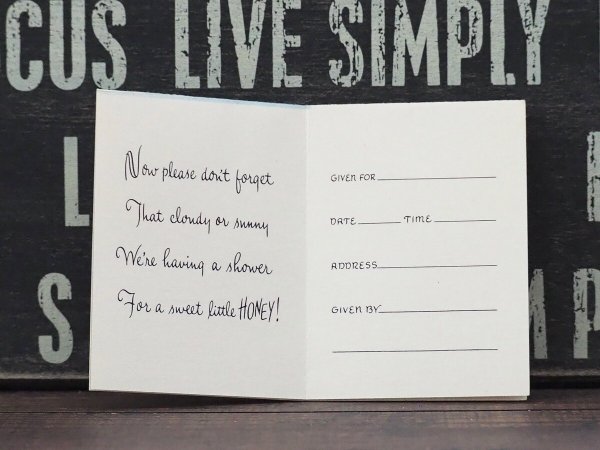 CUS LIVE SIMPLY
L
S
Now please don't forget
That cloudy or sunny
We're having a shower
For a sweet little HONEY!
GIVEN FOR
DATE TIME
ADDRESS
GIVEN BY